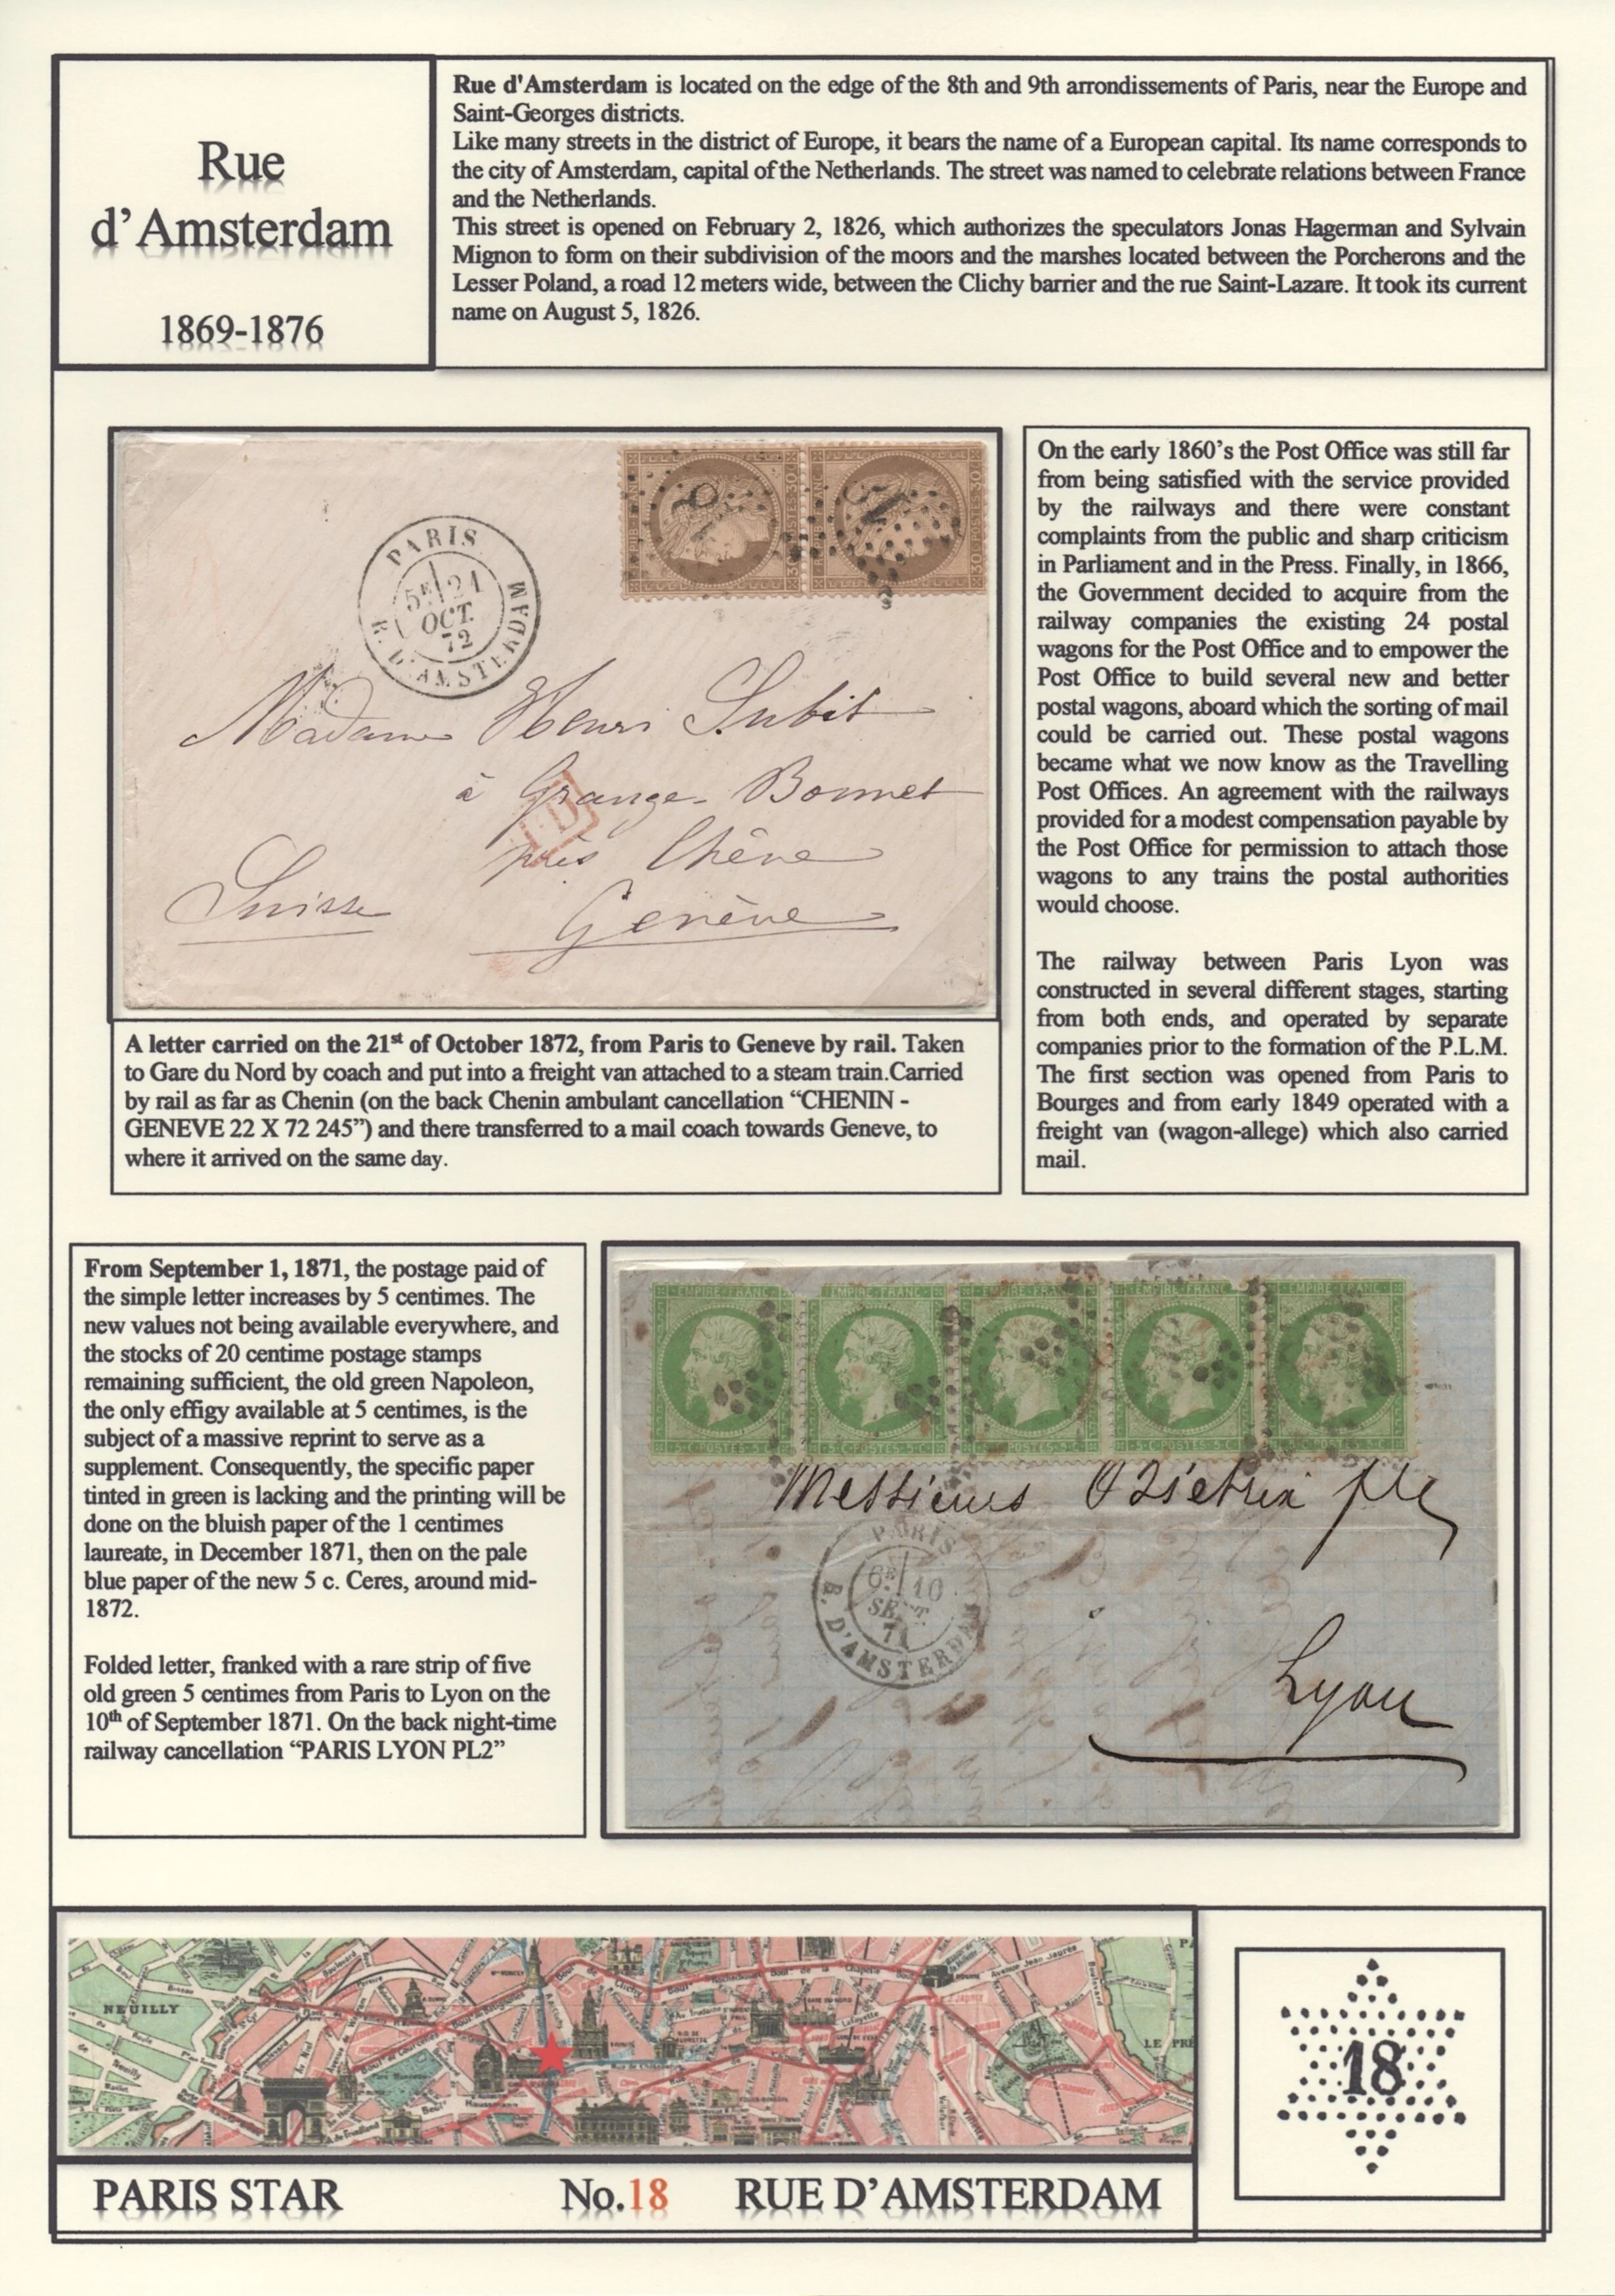 Rue
d'Amsterdam
1869-1876
Rue d'Amsterdam is located on the edge of the 8th and 9th arrondissements of Paris, near the Europe and
Saint-Georges districts.
Like many streets in the district of Europe, it bears the name of a European capital. Its name corresponds to
the city of Amsterdam, capital of the Netherlands. The street was named to celebrate relations between France
and the Netherlands.
This street is opened on February 2, 1826, which authorizes the speculators Jonas Hagerman and Sylvain
Mignon to form on their subdivision of the moors and the marshes located between the Porcherons and the
Lesser Poland, a road 12 meters wide, between the Clichy barrier and the rue Saint-Lazare. It took its current
name on August 5, 1826.
PARIS
5E 21
OCT.
72
R. D'AMSTERDAM
Madame Henri Subit
à Grange-Bonnet
près Chêne
Suisse
Genève
On the early 1860's the Post Office was still far
from being satisfied with the service provided
by the railways and there were constant
complaints from the public and sharp criticism
in Parliament and in the Press. Finally, in 1866,
the Government decided to acquire from the
railway companies the existing 24 postal
wagons for the Post Office and to empower the
Post Office to build several new and better
postal wagons, aboard which the sorting of mail
could be carried out. These postal wagons
became what we now know as the Travelling
Post Offices. An agreement with the railways
provided for a modest compensation payable by
the Post Office for permission to attach those
wagons to any trains the postal authorities
would choose.
The railway between Paris Lyon was
constructed in several different stages, starting
from both ends, and operated by separate
companies prior to the formation of the P.L.M.
The first section was opened from Paris to
Bourges and from early 1849 operated with a
freight van (wagon-allege) which also carried
mail.
A letter carried on the 21st of October 1872, from Paris to Geneve by rail. Taken
to Gare du Nord by coach and put into a freight van attached to a steam train.Carried
by rail as far as Chenin (on the back Chenin ambulant cancellation “CHENIN -
GENEVE 22 X 72 245”) and there transferred to a mail coach towards Geneve, to
where it arrived on the same day.
From September 1, 1871, the postage paid of
the simple letter increases by 5 centimes. The
new values not being available everywhere, and
the stocks of 20 centime postage stamps
remaining sufficient, the old green Napoleon,
the only effigy available at 5 centimes, is the
subject of a massive reprint to serve as a
supplement. Consequently, the specific paper
tinted in green is lacking and the printing will be
done on the bluish paper of the 1 centimes
laureate, in December 1871, then on the pale
blue paper of the new 5 c. Ceres, around mid-
1872.
Folded letter, franked with a rare strip of five
old green 5 centimes from Paris to Lyon on the
10th of September 1871. On the back night-time
railway cancellation “PARIS LYON PL2”
EMPIRE FRANC EMPIRE FRANC EMPIRE FRANC EMPIRE FRANC EMPIRE FRANC
5 C POSTES 5 C
Messieurs
PARIS
6E 10
SEPT
71
R. D'AMSTERDAM
Lyon
NEUILLY
PARIS STAR No.18 RUE D'AMSTERDAM
18